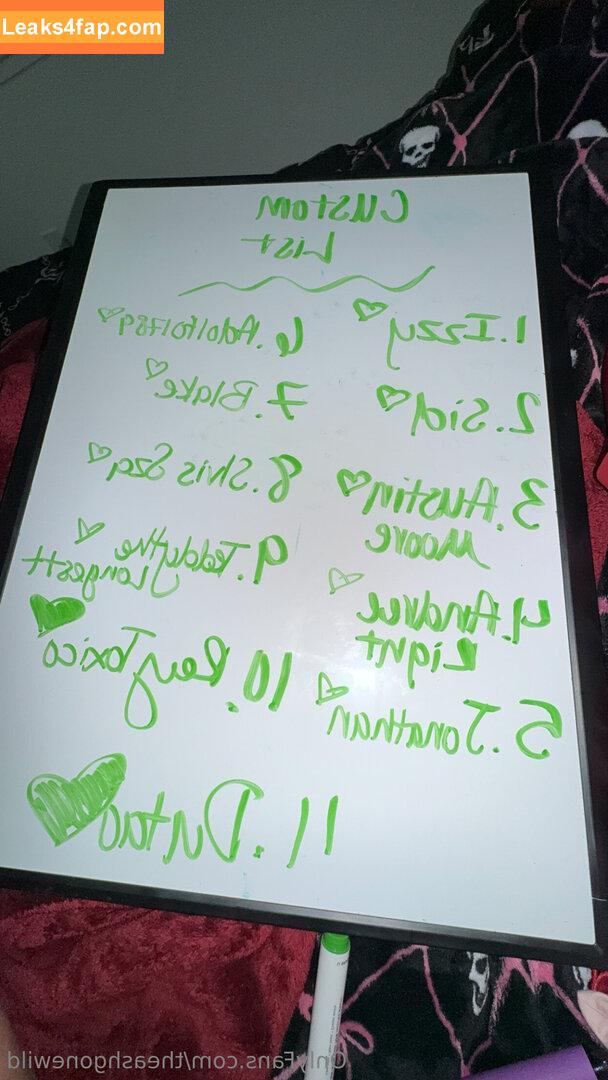 Leaks4fap.com
Custom
List
1. Izzy
2. Sid
3. Austin
Moore
4. Andree
Light
5. Jonathan
6. Adolfo1789
7. Blake
8. Slvis Sza
9. Teddy the
Longestt
10. Rey Toxico
11. Dutao
OnlyFans.com/theashgonewild